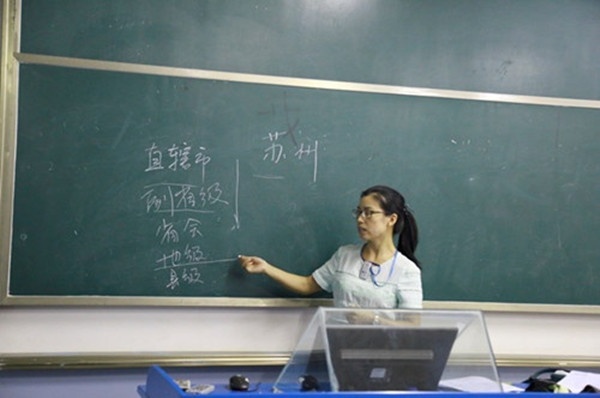 直辖市
副省级
省会
地级
县级
苏州